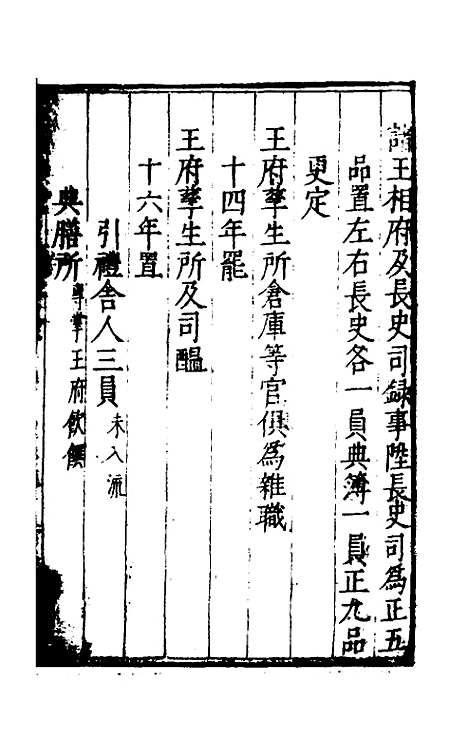 諸王相府及長史司録事陞長史司為正五
品置左右長史各一員典簿一員正九品
更定
王府孳生所倉庫等官俱為雜職
十四年罷
王府孳生所及司醞
十六年置
引禮舍人三員未入流
典膳所專掌王府飲饌